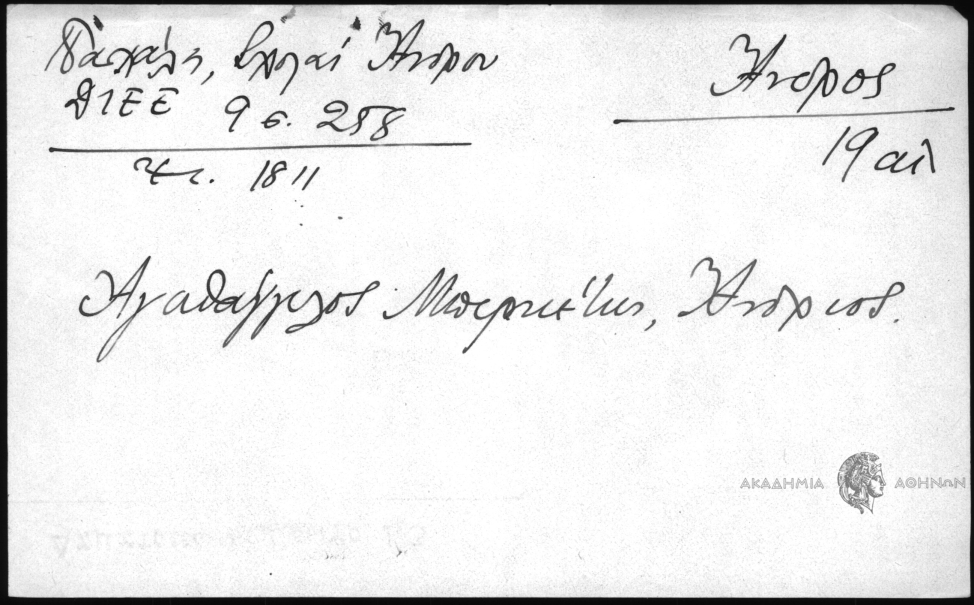 Πασχάλη, Σχολαί Ἄνδρου
ΔΙΕΕ 9 σ. 258
Χς. 1811
Ἄνδρος
19 αἰ
Ἀγαθάγγελος Μπερκέτης, Ἄνδριος.
ΑΚΑΔΗΜΙΑ ΑΘΗΝΩΝ